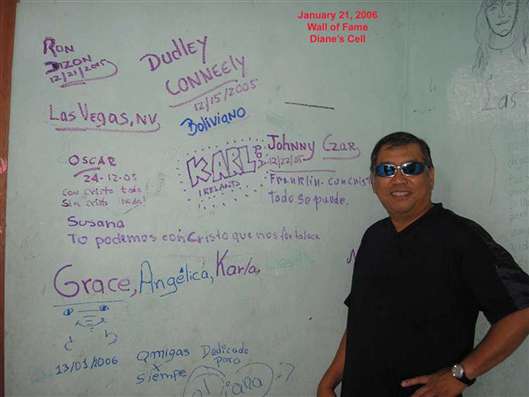 January 21, 2006
Wall of Fame
Diane's Cell
RON
DIZON
12/21/2005
DUDLEY
CONNEELY
12/15/2005
LAS VEGAS, NV
Boliviano
OSCAR
24-12-05
Con Cristo todo
Sin Cristo nada!
KARL
IRELAND
JOHNNY CZAR
12/22/05
Franklin-con crist
Todo se puede.
Susana
Tu podemos con Cristo que nos fortalece
Grace, Angélica, Karla,
13/01/2006
Qmigas Dedicado
x Para
Siempe
Las